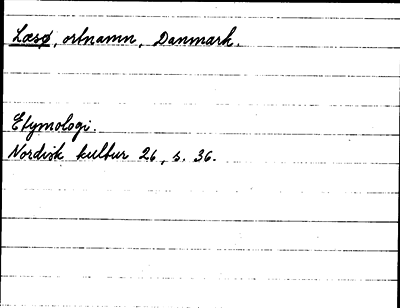 Læsø, ortnamn, Danmark.
Etymologi.
Nordisk kultur 26, s. 36.